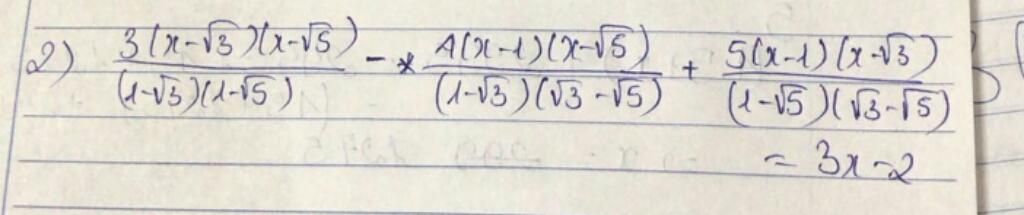 2) \frac{3(x-\sqrt{3})(x-\sqrt{5})}{(1-\sqrt{3})(1-\sqrt{5})} - * \frac{4(x-1)(x-\sqrt{5})}{(1-\sqrt{3})(\sqrt{3}-\sqrt{5})} + \frac{5(x-1)(x-\sqrt{3})}{(1-\sqrt{5})(\sqrt{3}-\sqrt{5})}
= 3x-2